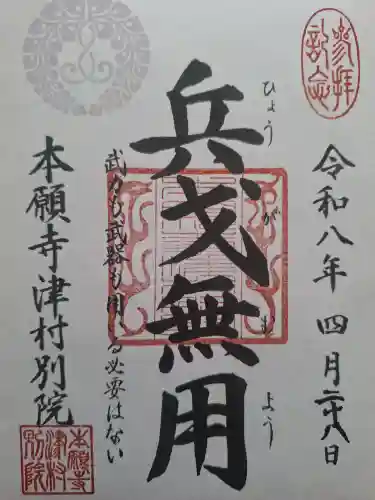 参拝
記念
令和八年 四月二十八日
兵戈無用
ひょうがむよう
武力も武器も用いる必要はない
本願寺津村別院
本願寺
津村
別院